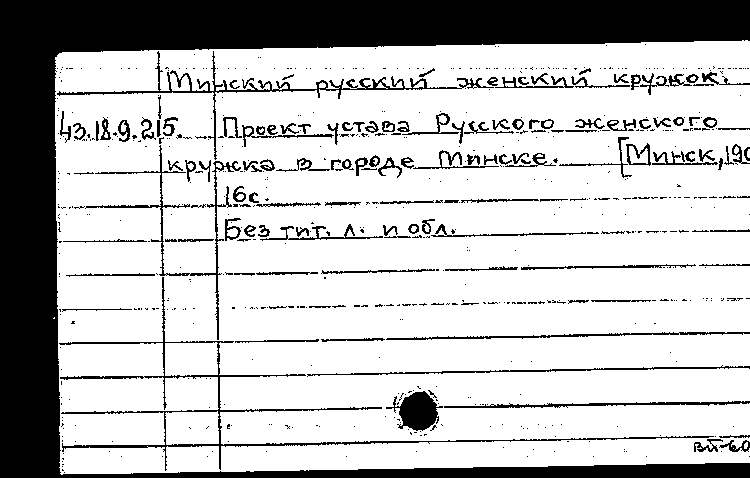 Минский русский женский кружок.
43.18.9.215. Проект устава Русского женского
кружка в городе Минске. [Минск, 190
16с.
Без тит. л. и обл.